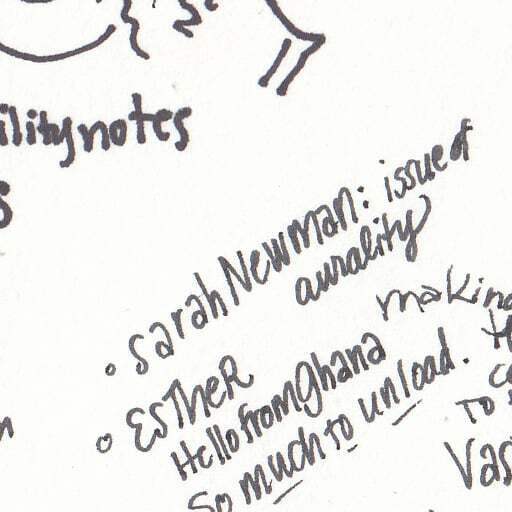 ilitynotes
s
Sarah Newman: issue of
aurality
making
EsTHeR
Hello from Ghana
So much to unload.
To
Vas